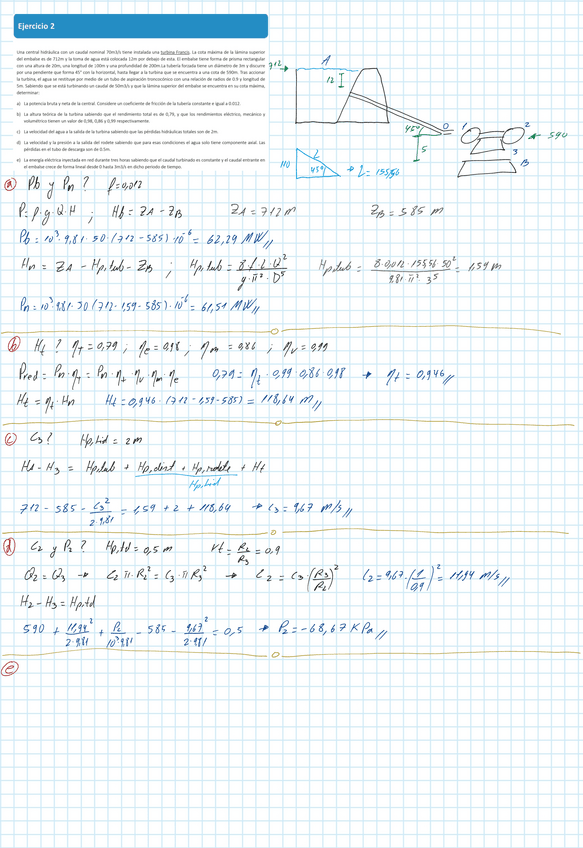 Ejercicio 2
Una central hidráulica con un caudal nominal 70m3/s tiene instalada una turbina Francis. La cota máxima de la lámina superior
del embalse es de 712m y la toma de agua está colocada 12m por debajo de esta. El embalse tiene forma de prisma rectangular
con una altura de 20m, una longitud de 100m y una profundidad de 200m La tubería forzada tiene un diámetro de 3m y discurre
por una pendiente que forma 45° con la horizontal, hasta llegar a la turbina que se encuentra a una cota de 590m. Tras accionar
la turbina, el agua se restituye por medio de un tubo de aspiración troncocónico con una relación de radios de 0.9 y longitud de
5m. Sabiendo que se está turbinando un caudal de 50m3/s y que la lámina superior del embalse se encuentra en su cota máxima,
determinar:
a) La potencia bruta y neta de la central. Considere un coeficiente de fricción de la tubería constante e igual a 0.012.
b) La altura teórica de la turbina sabiendo que el rendimiento total es de 0,79, y que los rendimientos eléctrico, mecánico y
volumétrico tienen un valor de 0,98, 0,86 y 0,99 respectivamente.
c) La velocidad del agua a la salida de la turbina sabiendo que las pérdidas hidráulicas totales son de 2m.
d) La velocidad y la presión a la salida del rodete sabiendo que para esas condiciones el agua solo tiene componente axial. Las
pérdidas en el tubo de descarga son de 0.5m.
e) La energía eléctrica inyectada en red durante tres horas sabiendo que el caudal turbinado es constante y el caudal entrante en
el embalse crece de forma lineal desde 0 hasta 3m3/s en dicho periodo de tiempo.
712 A
12
45° 0 1 2 590
5 3
B
110 L 45° → L = 155,56
a) Pb y Pn ? f=0,012
P=ρ·g·Q·H ; Hb = ZA - ZB ZA = 712 m ZB = 585 m
Pb = 10³·9,81·50·(712-585)·10⁻⁶ = 62,29 MW//
Hn = ZA - Hp,tub - ZB ; Hp,tub = 8·f·L·Q² / g·π²·D⁵ Hp,tub = 8·0,012·155,56·50² / 9,81·π²·3⁵ = 1,59 m
Pn = 10³·9,81·50·(712-1,59-585)·10⁻⁶ = 61,51 MW//
b) Ht ? ηT = 0,79 ; ηe = 0,98 ; ηm = 0,86 ; ηv = 0,99
Pred = Pn·ηT = Pn·ηt·ηv·ηm·ηe 0,79 = ηt·0,99·0,86·0,98 → ηt = 0,946//
Ht = ηt·Hn Ht = 0,946·(712-1,59-585) = 118,64 m//
c) C3? Hp,hid = 2m
HA - H3 = Hp,tub + Hp,dist + Hp,rodete + Ht
Hp,hid
712 - 585 - C3² / 2·9,81 = 1,59 + 2 + 118,64 → C3 = 9,67 m/s//
d) C2 y P2 ? Hp,td = 0,5 m rt = R2 / R3 = 0,9
Q2 = Q3 → C2·π·R2² = C3·π·R3² → C2 = C3(R3/R2)² C2 = 9,67·(1/0,9)² = 11,94 m/s//
H2 - H3 = Hp,td
590 + 11,94² / 2·9,81 + P2 / 10³·9,81 - 585 - 9,67² / 2·9,81 = 0,5 → P2 = -68,67 KPa//
e)